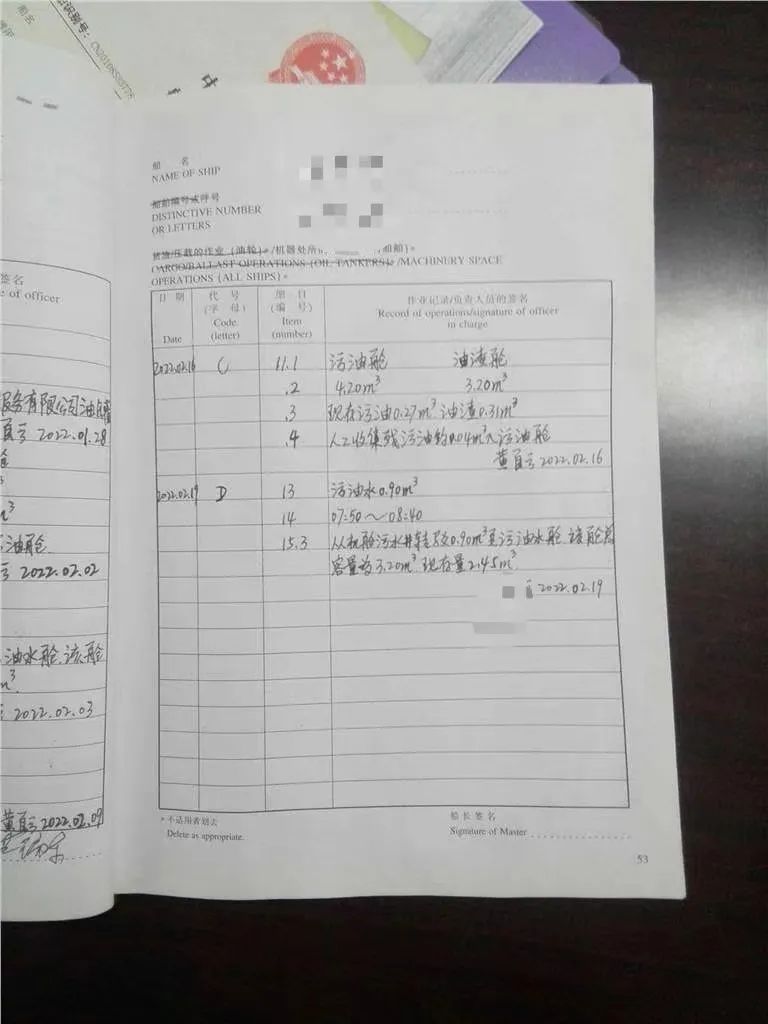 船名
CN20108580776
船 名
NAME OF SHIP
船舶编号或呼号
DISTINCTIVE NUMBER
OR LETTERS
货油/压载的作业(油轮)*/机器处所
船舶)*
CARGO/BALLAST OPERATIONS (OIL TANKERS)*/MACHINERY SPACE
OPERATIONS (ALL SHIPS)*
日 期 代 号 细 目 作业记录/负责人员的签名
(字 母) (编 号) Record of operations/signature of officer
Code Item in charge
Date (letter) (number)
2022.02.16 C 11.1 污油舱 油渣舱
.2 4.20m³ 3.20m³
.3 现存污油0.27m³ 油渣0.31m³
.4 人工收集残污油约0.04m³入污油舱
2022.02.16
2022.02.19 D 13 污油水0.90m³
14 07:50~08:40
15.3 从机舱污水井转驳0.90m³至污油水舱,该舱总
容量为3.20m³ 现存量2.45m³
2022.02.19
* 不适用者划去
Delete as appropriate.
船 长 签 名
Signature of Master
53
签名
e of officer
服务有限公司油
2022.01.28
m³
油舱
2022.02.02
油水舱,该舱
m³
2022.02.03
2022.02.09